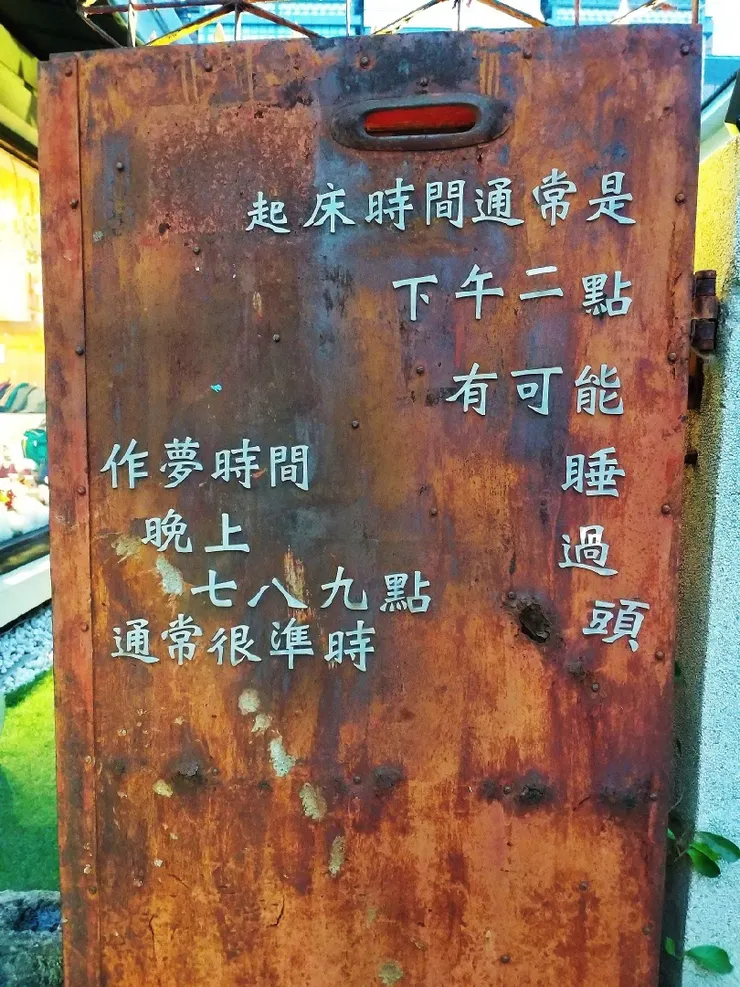 起床時間通常是
下午二點
有可能
睡
過
頭
作夢時間
晚上
七八九點
通常很準時